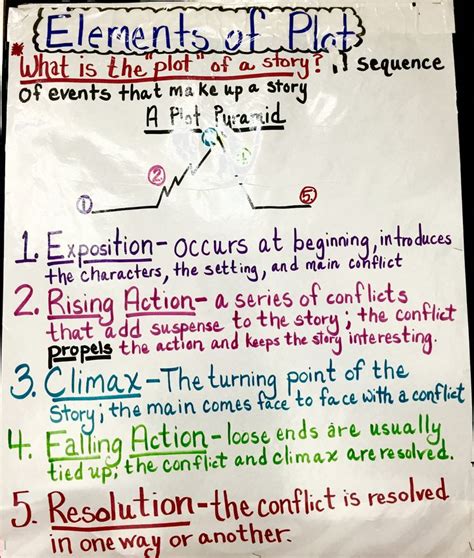 Elements of Plot
* What is the "plot" of a story? A sequence
of events that make up a story
A Plot Pyramid
1. 2. 3. 4. 5.
1. Exposition- occurs at beginning, introduces
the characters, the setting, and main conflict
2. Rising Action- a series of conflicts
that add suspense to the story; the conflict
propels the action and keeps the story interesting.
3. Climax-The turning point of the
Story; the main comes face to face with a conflict
4. Falling Action-loose ends are usually
tied up; the conflict and climax are resolved.
5. Resolution-the conflict is resolved
in one way or another.